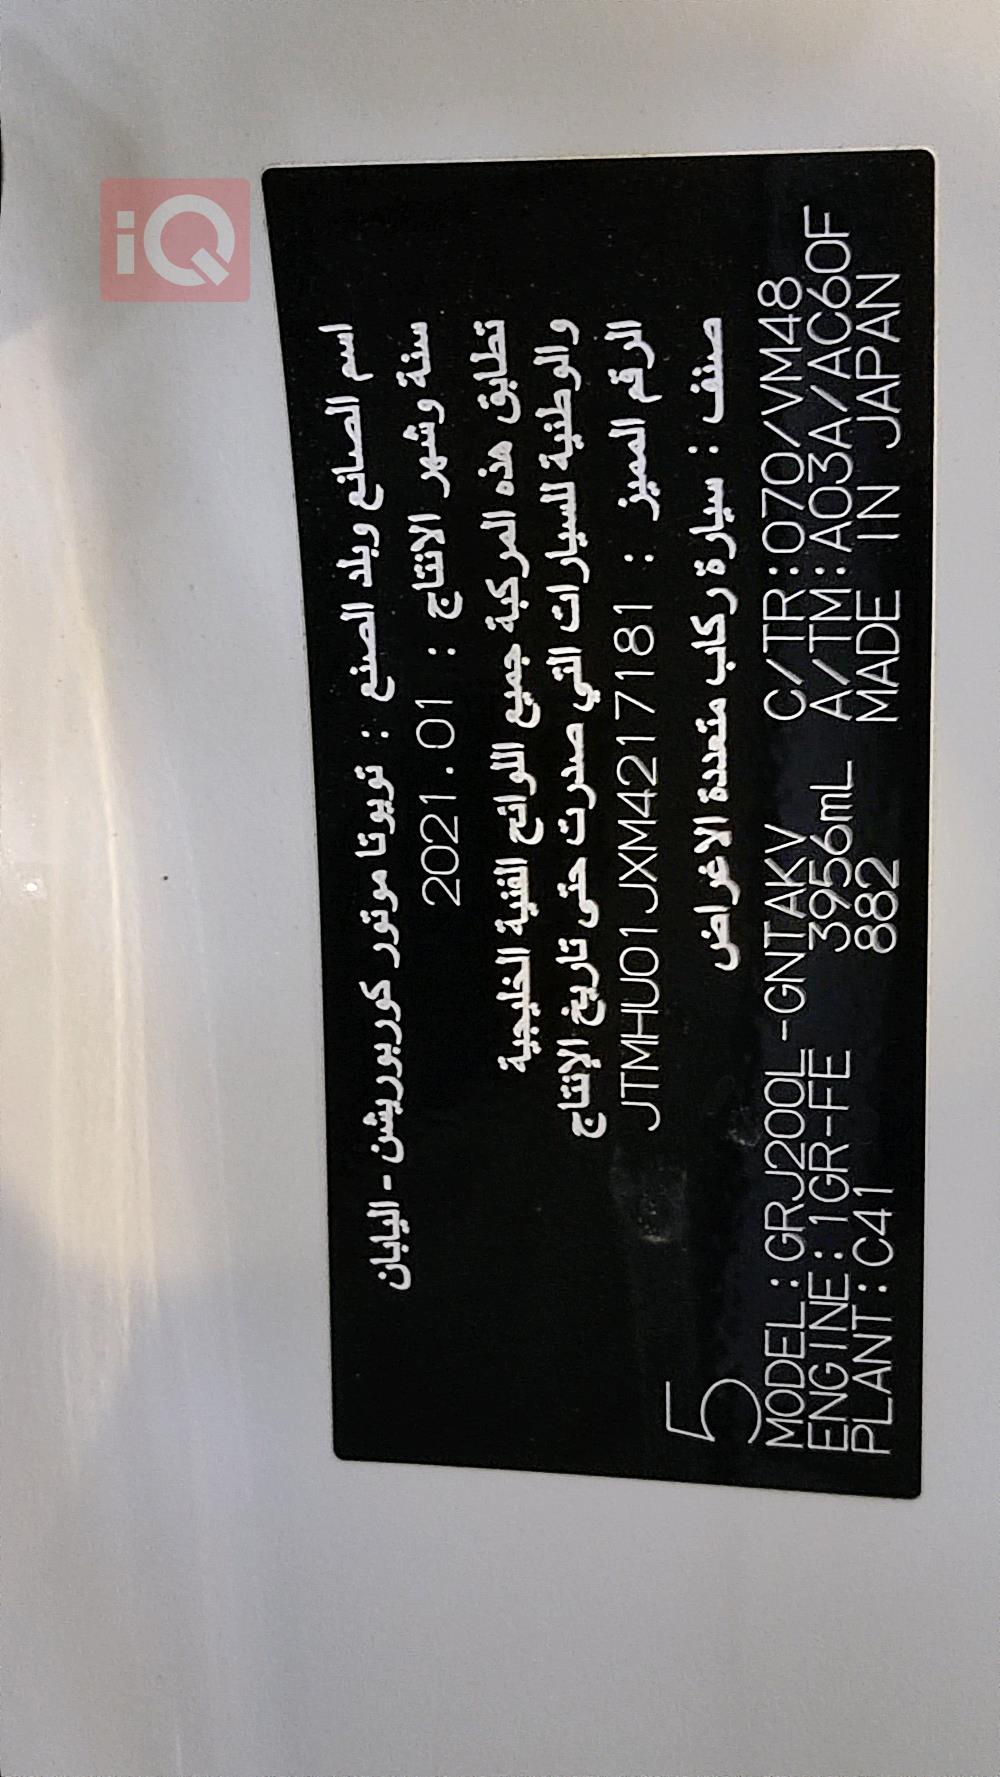 اسم الصانع وبلد الصنع : تويوتا موتور كوربوريشن - اليابان
سنة وشهر الانتاج : 2021.01
تطابق هذه المركبة جميع اللوائح الفنية الخليجية
والوطنية للسيارات التي صدرت حتى تاريخ الإنتاج
الرقم المميز : JTMHU01JXM4217181
صنف : سيارة ركاب متعددة الاغراض
5
MODEL:GRJ200L-GNTAKV C/TR:070/VM48
ENGINE:1GR-FE 3956mL A/TM:A03A/AC60F
PLANT:C41 882 MADE IN JAPAN
iQ